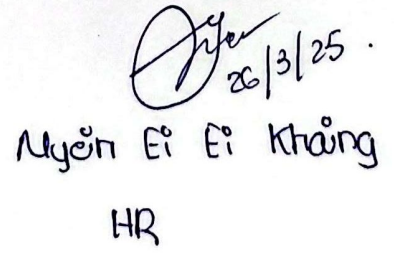 26/3/25.
Myein Ei Ei Khaing
HR